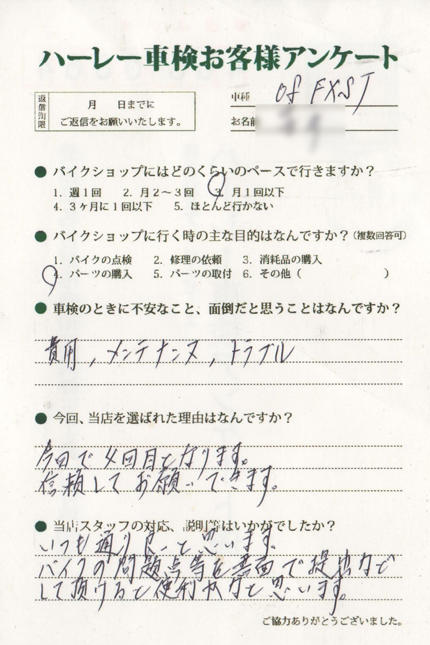 ハーレー車検お客様アンケート
返信期限
月 日までに
ご返信をお願いいたします。
車種 08 FXST
お名前
● バイクショップにはどのくらいのペースで行きますか?
1. 週1回 2. 月2〜3回 3. 月1回以下
4. 3ヶ月に1回以下 5. ほとんど行かない
● バイクショップに行く時の主な目的はなんですか?(複数回答可)
1. バイクの点検 2. 修理の依頼 3. 消耗品の購入
4. パーツの購入 5. パーツの取付 6. その他( )
● 車検のときに不安なこと、面倒だと思うことはなんですか?
費用, メンテナンス, トラブル
● 今回、当店を選ばれた理由はなんですか?
今回で4回目となります。
信頼してお願いできます。
● 当店スタッフの対応、説明等はいかがでしたか?
いつも通り良いと思います。
バイクの問題点等を書面で提出
して頂けると便利かと思います。
ご協力ありがとうございました。